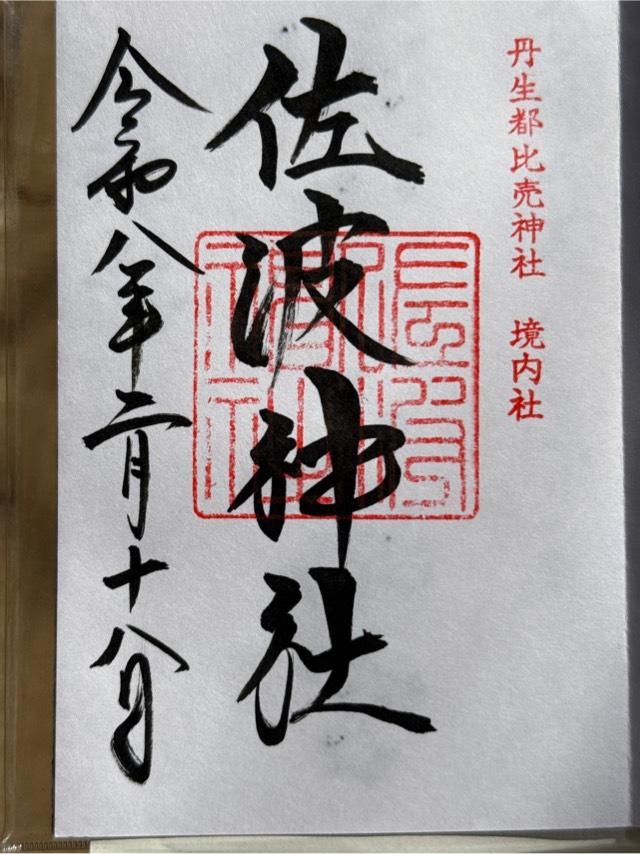 丹生都比売神社 境内社
佐波神社
令和八年二月十八日